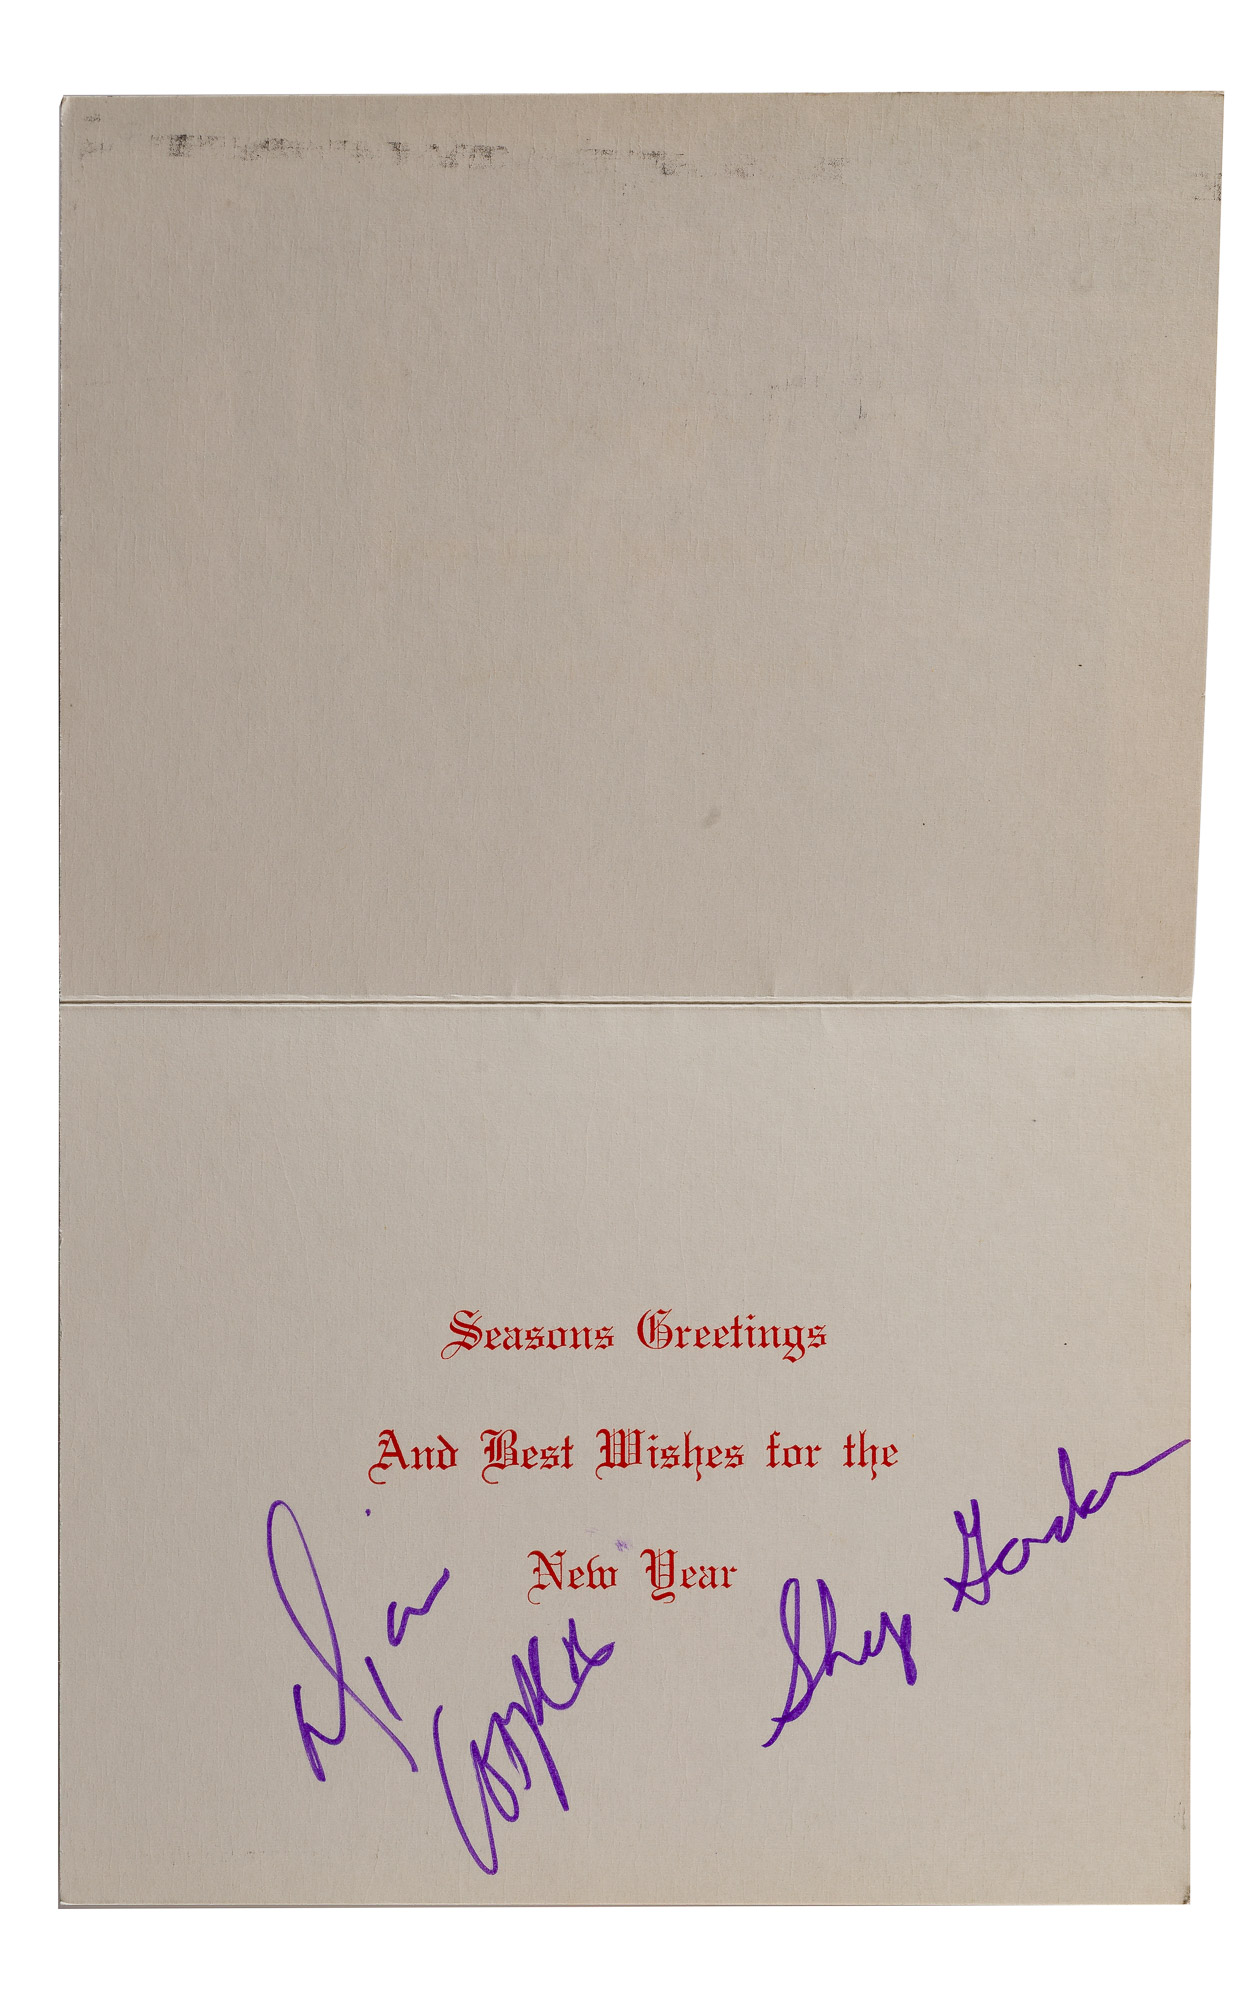 Seasons Greetings
And Best Wishes for the
New Year
Cooper
Shep Gordon